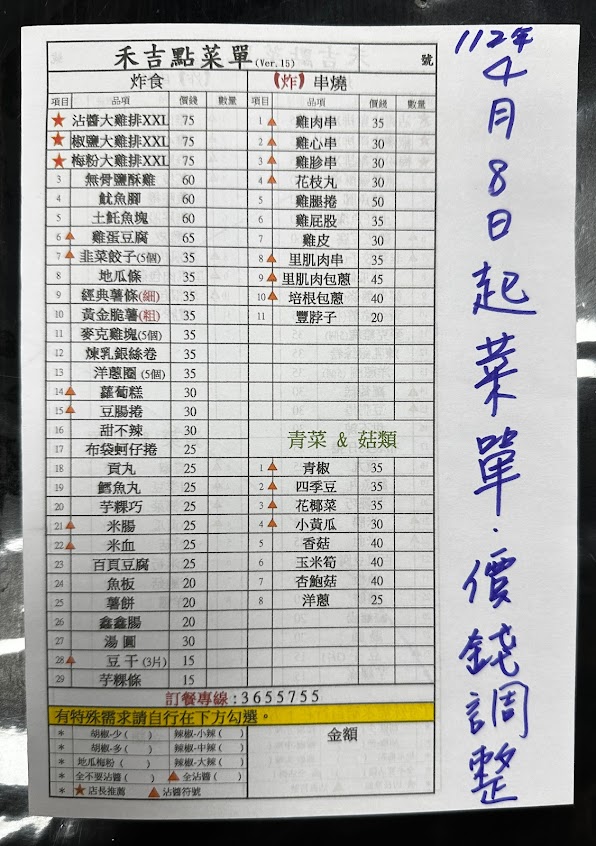 禾吉點菜單(Ver.15) 號
炸食
項目 品項 價錢 數量
★ 沾醬大雞排XXL 75
★ 椒鹽大雞排XXL 75
★ 梅粉大雞排XXL 75
3 無骨鹽酥雞 60
4 魷魚腳 60
5 土魠魚塊 60
6 ▲ 雞蛋豆腐 65
7 ▲ 韭菜餃子(5個) 35
8 地瓜條 35
9 經典薯條(細) 35
10 黃金脆薯(粗) 35
11 麥克雞塊(5個) 35
12 煉乳銀絲卷 35
13 洋蔥圈(5個) 35
14 ▲ 蘿蔔糕 30
15 ▲ 豆腸捲 30
16 甜不辣 30
17 布袋蚵仔捲 25
18 貢丸 25
19 鱈魚丸 25
20 芋粿巧 25
21 ▲ 米腸 25
22 ▲ 米血 25
23 百頁豆腐 25
24 魚板 20
25 薯餅 20
26 鑫鑫腸 20
27 湯圓 30
28 ▲ 豆干(3片) 15
29 芋粿條 15
【炸】串燒
項目 品項 價錢 數量
1 ▲ 雞肉串 35
2 ▲ 雞心串 30
3 ▲ 雞胗串 30
4 ▲ 花枝丸 30
5 雞腿捲 50
6 雞屁股 35
7 雞皮 30
8 ▲ 里肌肉串 35
9 ▲ 里肌肉包蔥 45
10 ▲ 培根包蔥 40
11 豐脖子 20
青菜 & 菇類
1 ▲ 青椒 35
2 ▲ 四季豆 35
3 ▲ 花椰菜 35
4 ▲ 小黃瓜 30
5 香菇 40
6 玉米筍 40
7 杏鮑菇 40
8 洋蔥 25
訂餐專線:3655755
有特殊需求請自行在下方勾選。
* 胡椒-少( ) 辣椒-小辣( )
* 胡椒-多( ) 辣椒-中辣( )
* 地瓜梅粉( ) 辣椒-大辣( )
* 全不要沾醬( ) ▲ 全沾醬( )
* ★ 店長推薦 ▲ 沾醬符號
金額
112年
4月8日起菜單.價錢調整